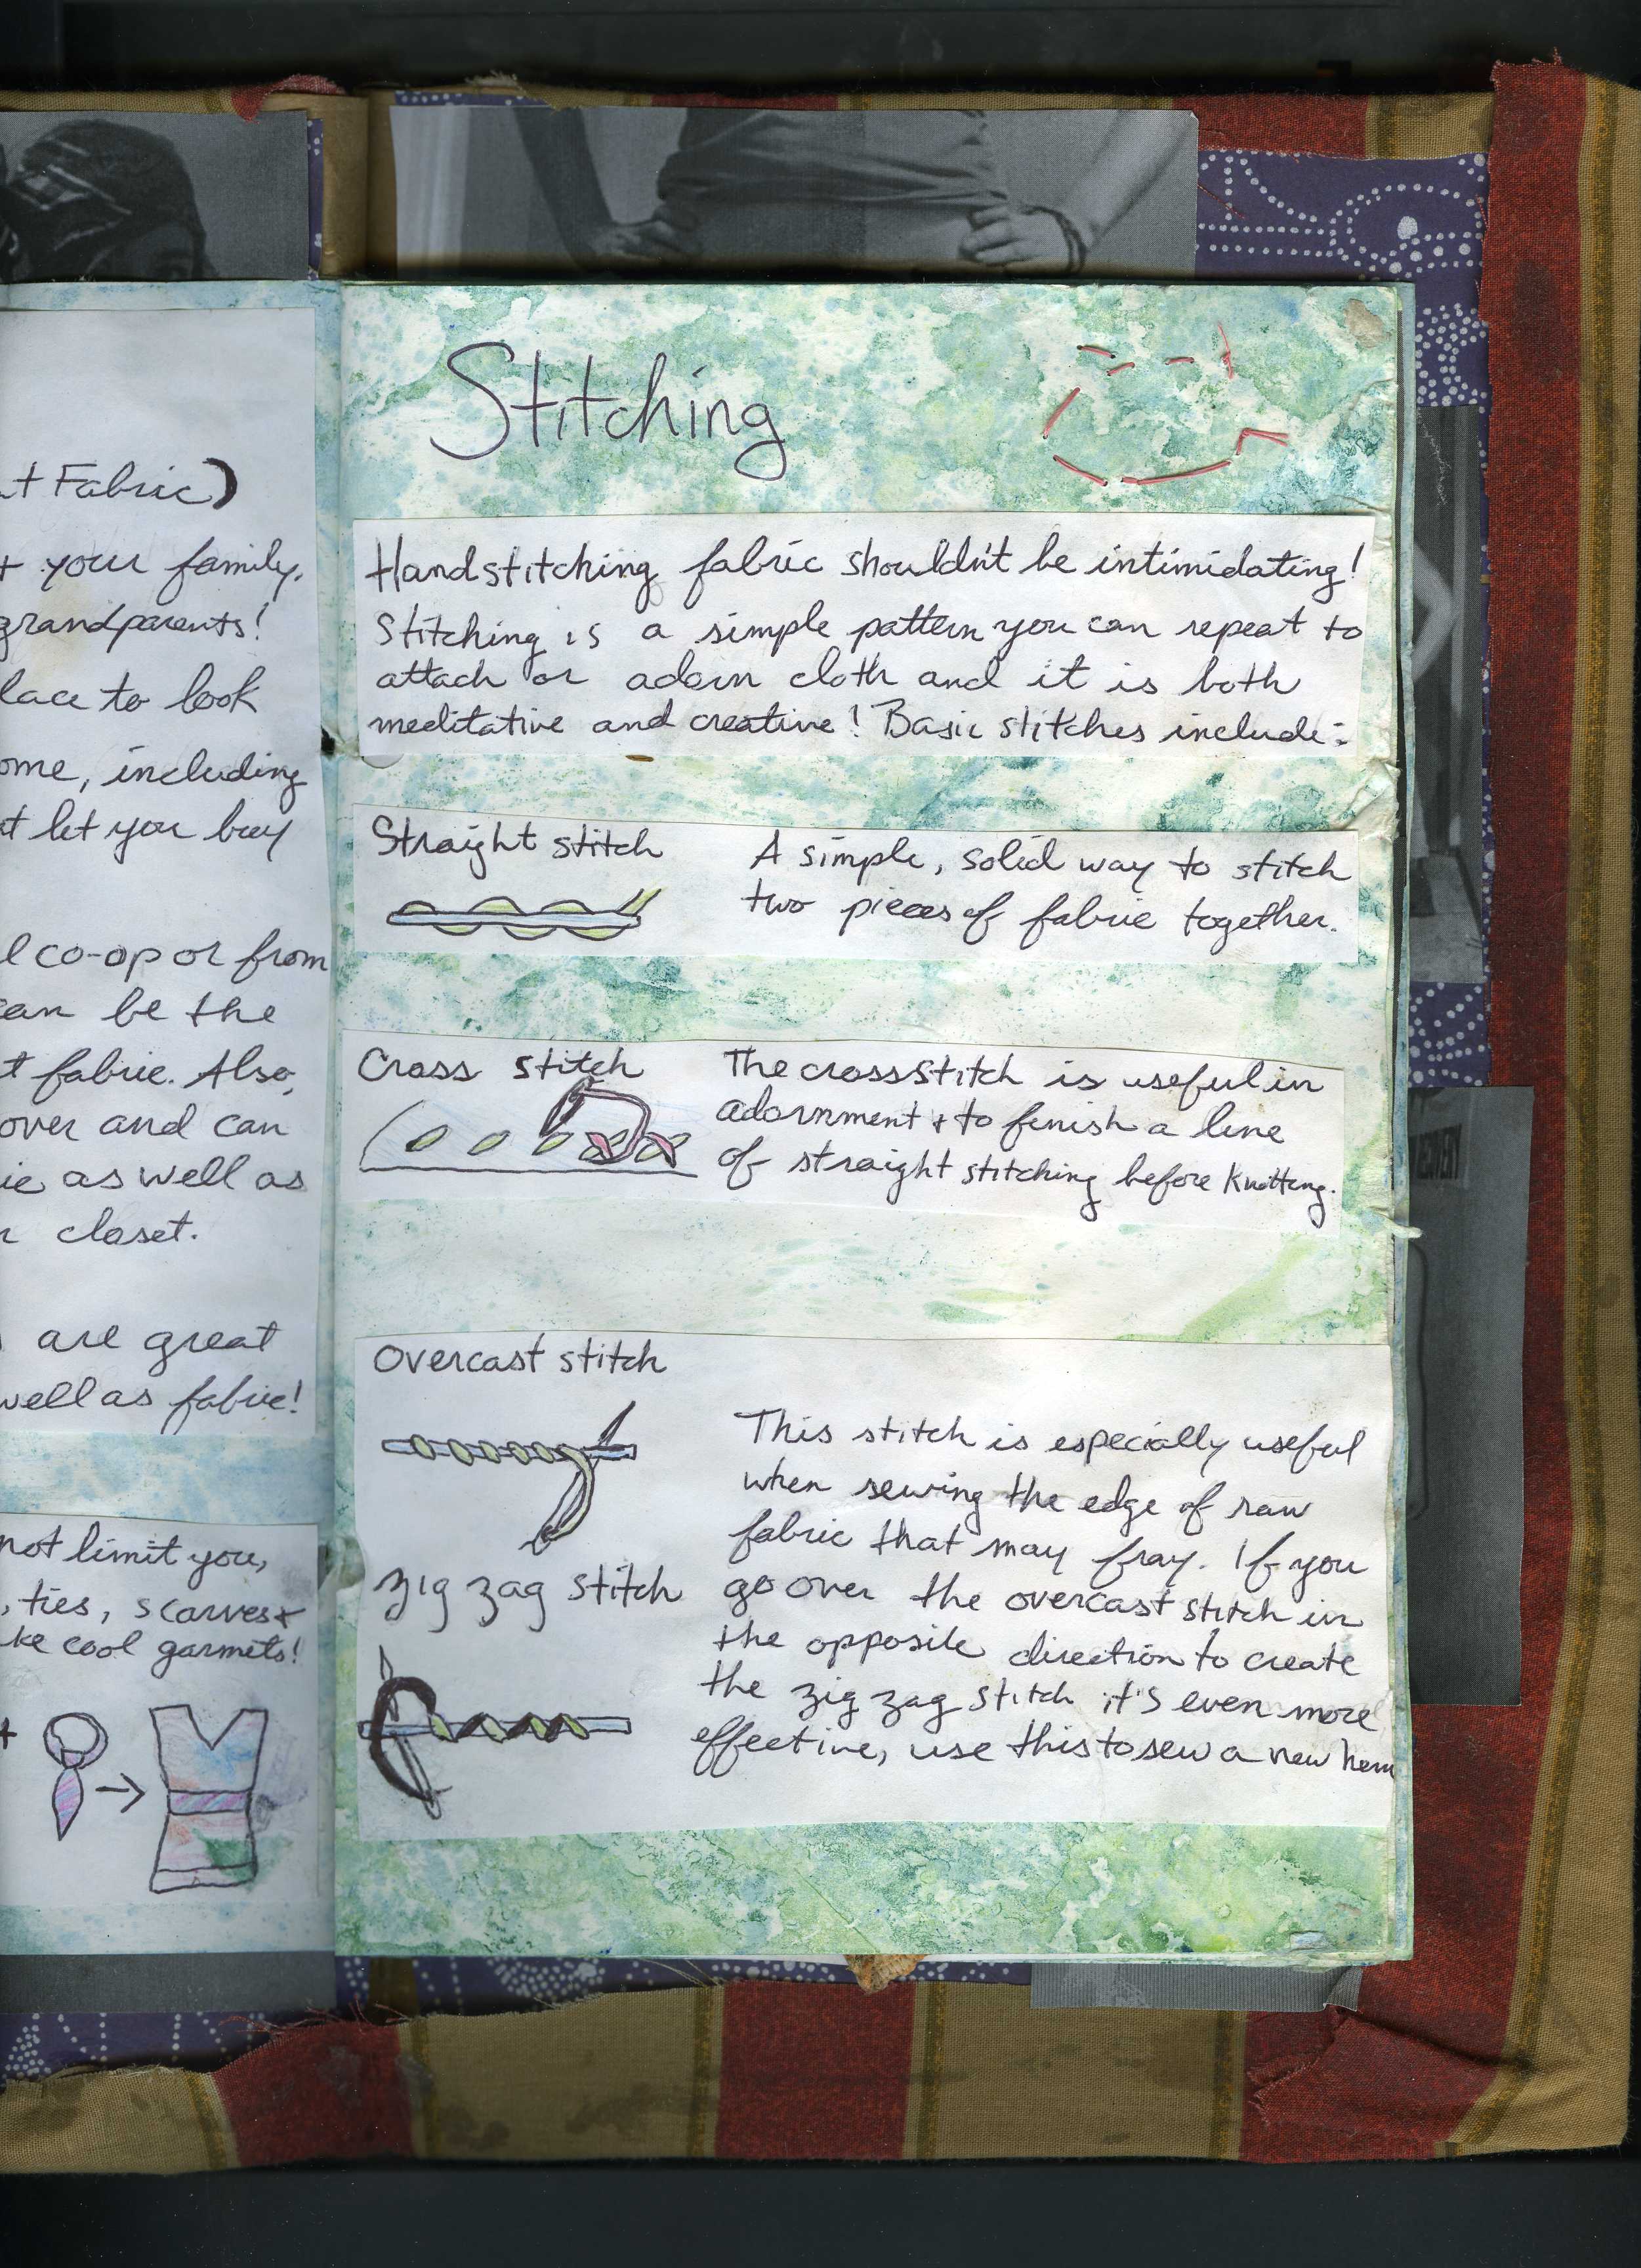 t Fabric)
+ your family.
grandparents!
lace to look
ome, including
at let you buy
l co-op or from
can be the
t fabric. Also,
over and can
ic as well as
r closet.
are great
well as fabric!
not limit you,
, ties, scarves +
ke cool garmets!
Stitching
Handstitching fabric shouldn't be intimidating!
Stitching is a simple pattern you can repeat to
attach or adorn cloth and it is both
meditative and creative! Basic stitches include:
Straight stitch
A simple, solid way to stitch
two pieces of fabric together.
Cross stitch
The crossstitch is useful in
adornment + to finish a line
of straight stitching before knotting.
Overcast stitch
This stitch is especially useful
when sewing the edge of raw
fabric that may fray. If you
go over the overcast stitch in
the opposite direction to create
the zig zag stitch it's even more
effective, use this to sew a new hem
zig zag stitch